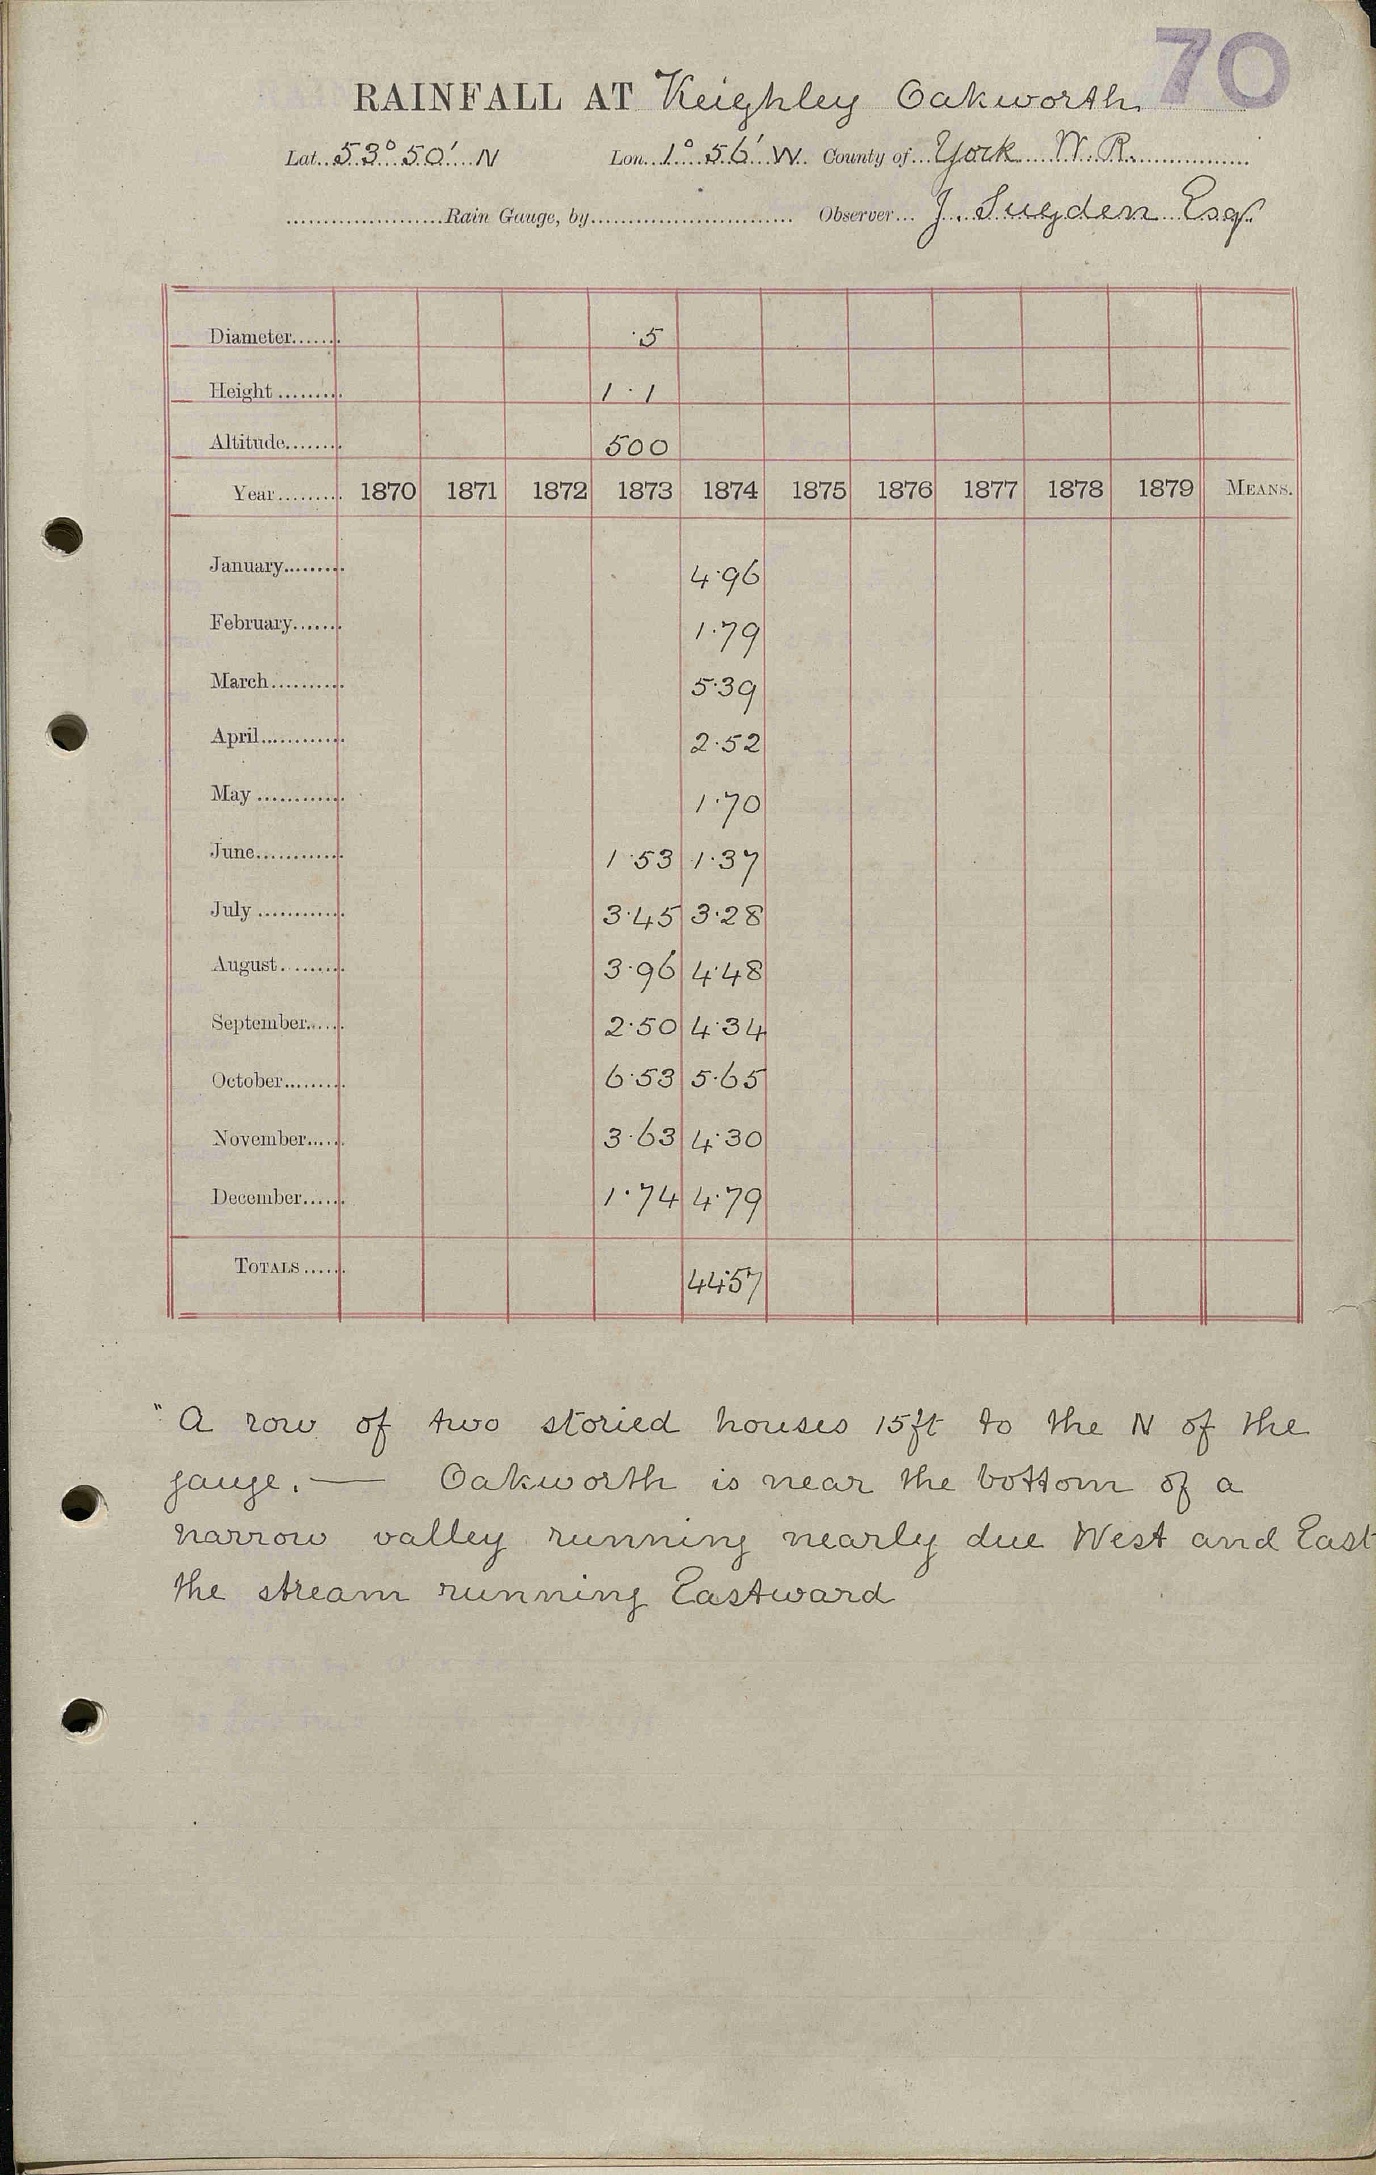 70
RAINFALL AT Keighley Oakworth.
Lat. 53° 50' N Lon. 1° 56' W. County of York W.R.
Rain Gauge, by Observer J. Sugden Esqr.
Diameter ·5
Height 1·1
Altitude 500
Year 1870 1871 1872 1873 1874 1875 1876 1877 1878 1879 MEANS.
January 4·96
February 1·79
March 5·39
April 2·52
May 1·70
June 1·53 1·37
July 3·45 3·28
August 3·96 4·48
September 2·50 4·34
October 6·53 5·65
November 3·63 4·30
December 1·74 4·79
TOTALS 44·57
" A row of two storied houses 15ft to the N of the
gauge. — Oakworth is near the bottom of a
narrow valley running nearly due West and East
the stream running Eastward